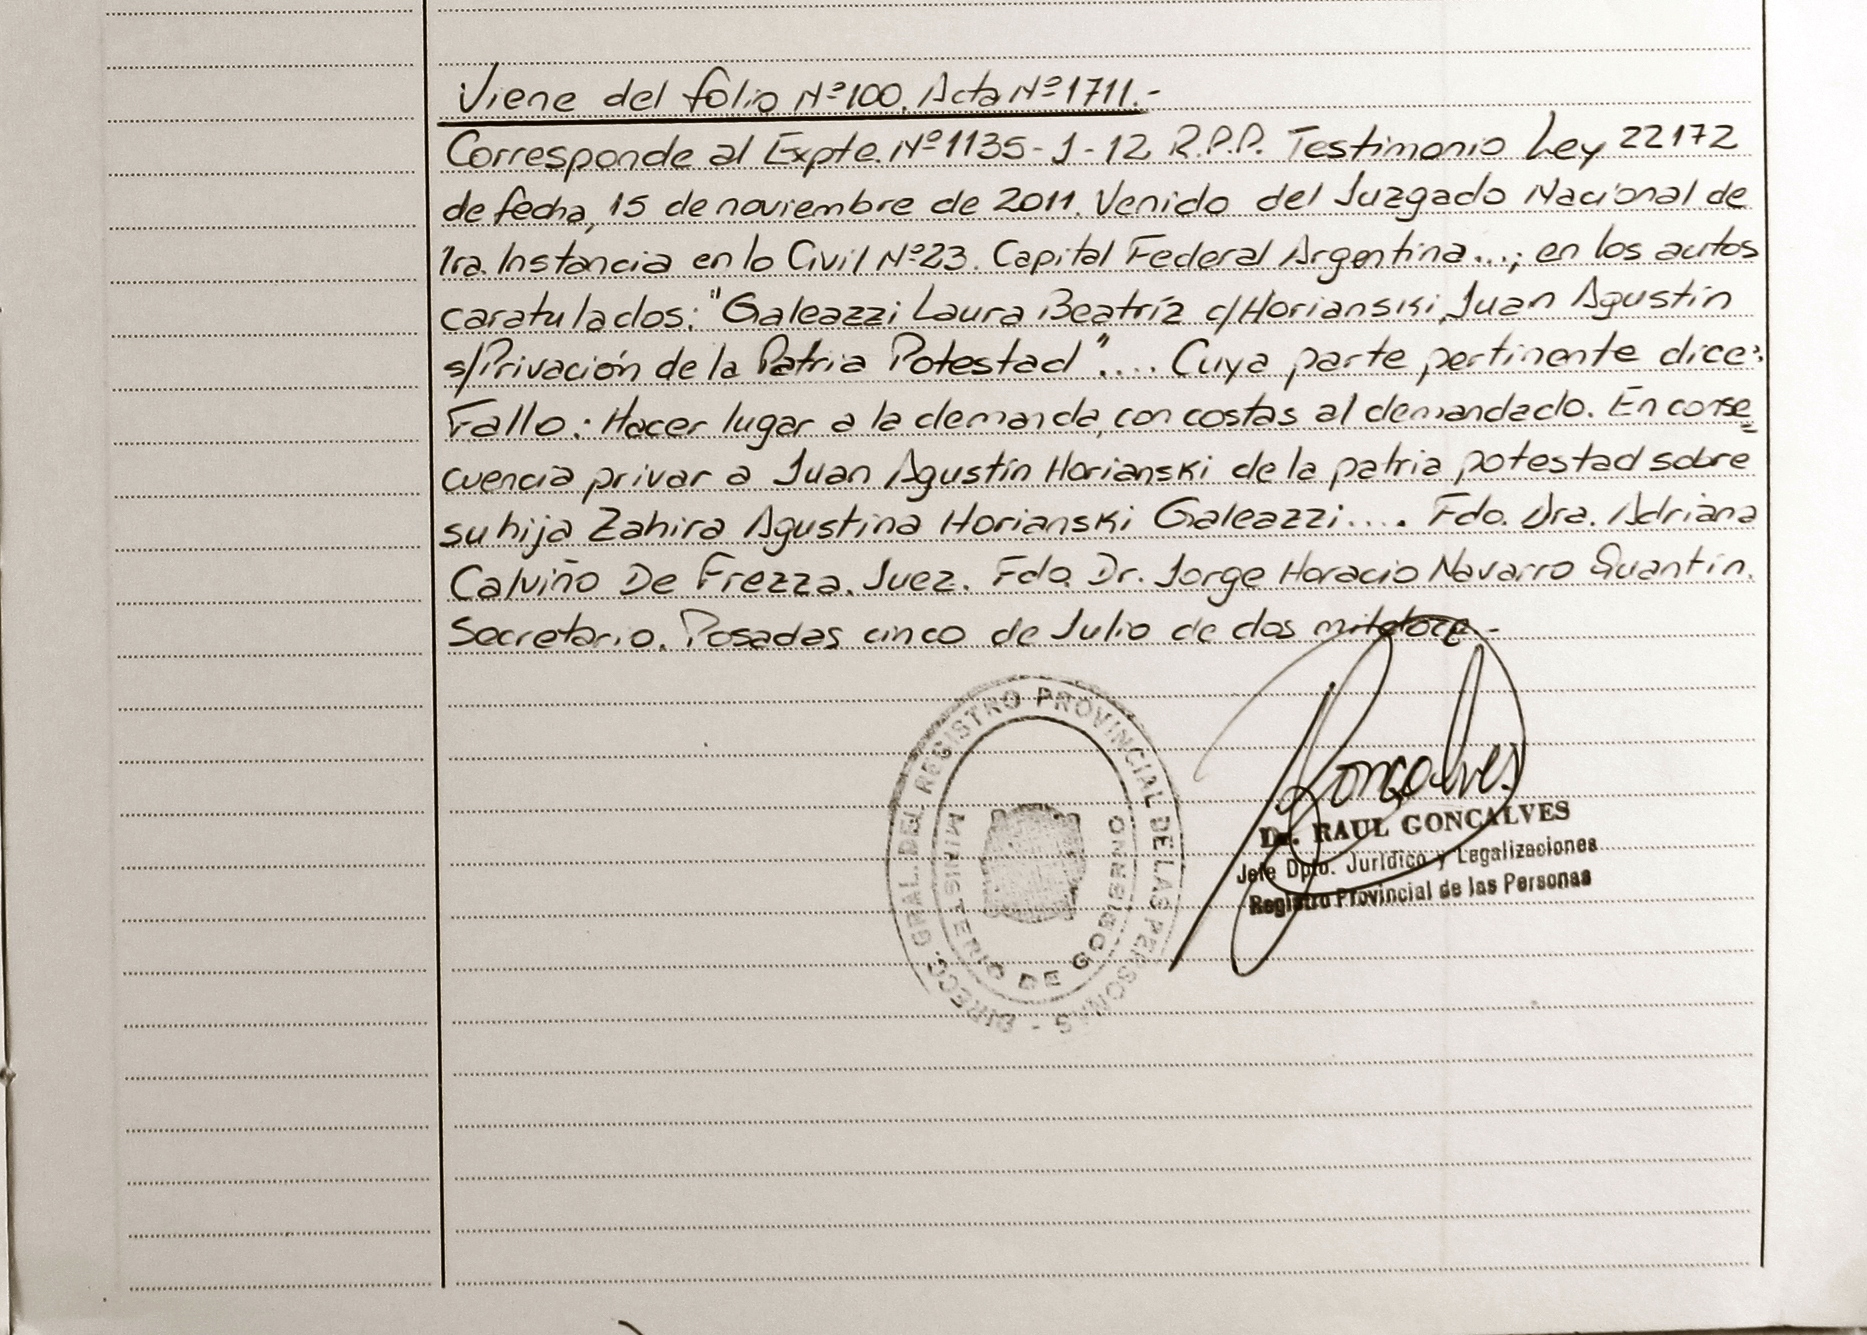 Viene del folio Nº100. Acta Nº1711.-
Corresponde al Expte. Nº1135-J-12 R.P.P. Testimonio Ley 22172
de fecha, 15 de noviembre de 2011. Venido del Juzgado Nacional de
1ra. Instancia en lo Civil Nº23. Capital Federal Argentina...; en los autos
caratulados: "Galeazzi Laura Beatríz c/Horianski, Juan Agustín
s/Privación de la Patria Potestad".... Cuya parte pertinente dice:
Fallo: Hacer lugar a la demanda, con costas al demandado. En conse
cuencia privar a Juan Agustín Horianski de la patria potestad sobre
su hija Zahira Agustina Horianski Galeazzi.... Fdo. Dra. Adriana
Calviño De Frezza. Juez. Fdo. Dr. Jorge Horacio Navarro Quantín.
Secretario. Posadas cinco de Julio de dos mil doce.-
DIRECC. GRAL. DEL REGISTRO PROVINCIAL DE LAS PERSONAS -
MINISTERIO DE GOBIERNO
Goncalves
Dr. RAUL GONCALVES
Jefe Dpto. Jurídico y Legalizaciones
Registro Provincial de las Personas